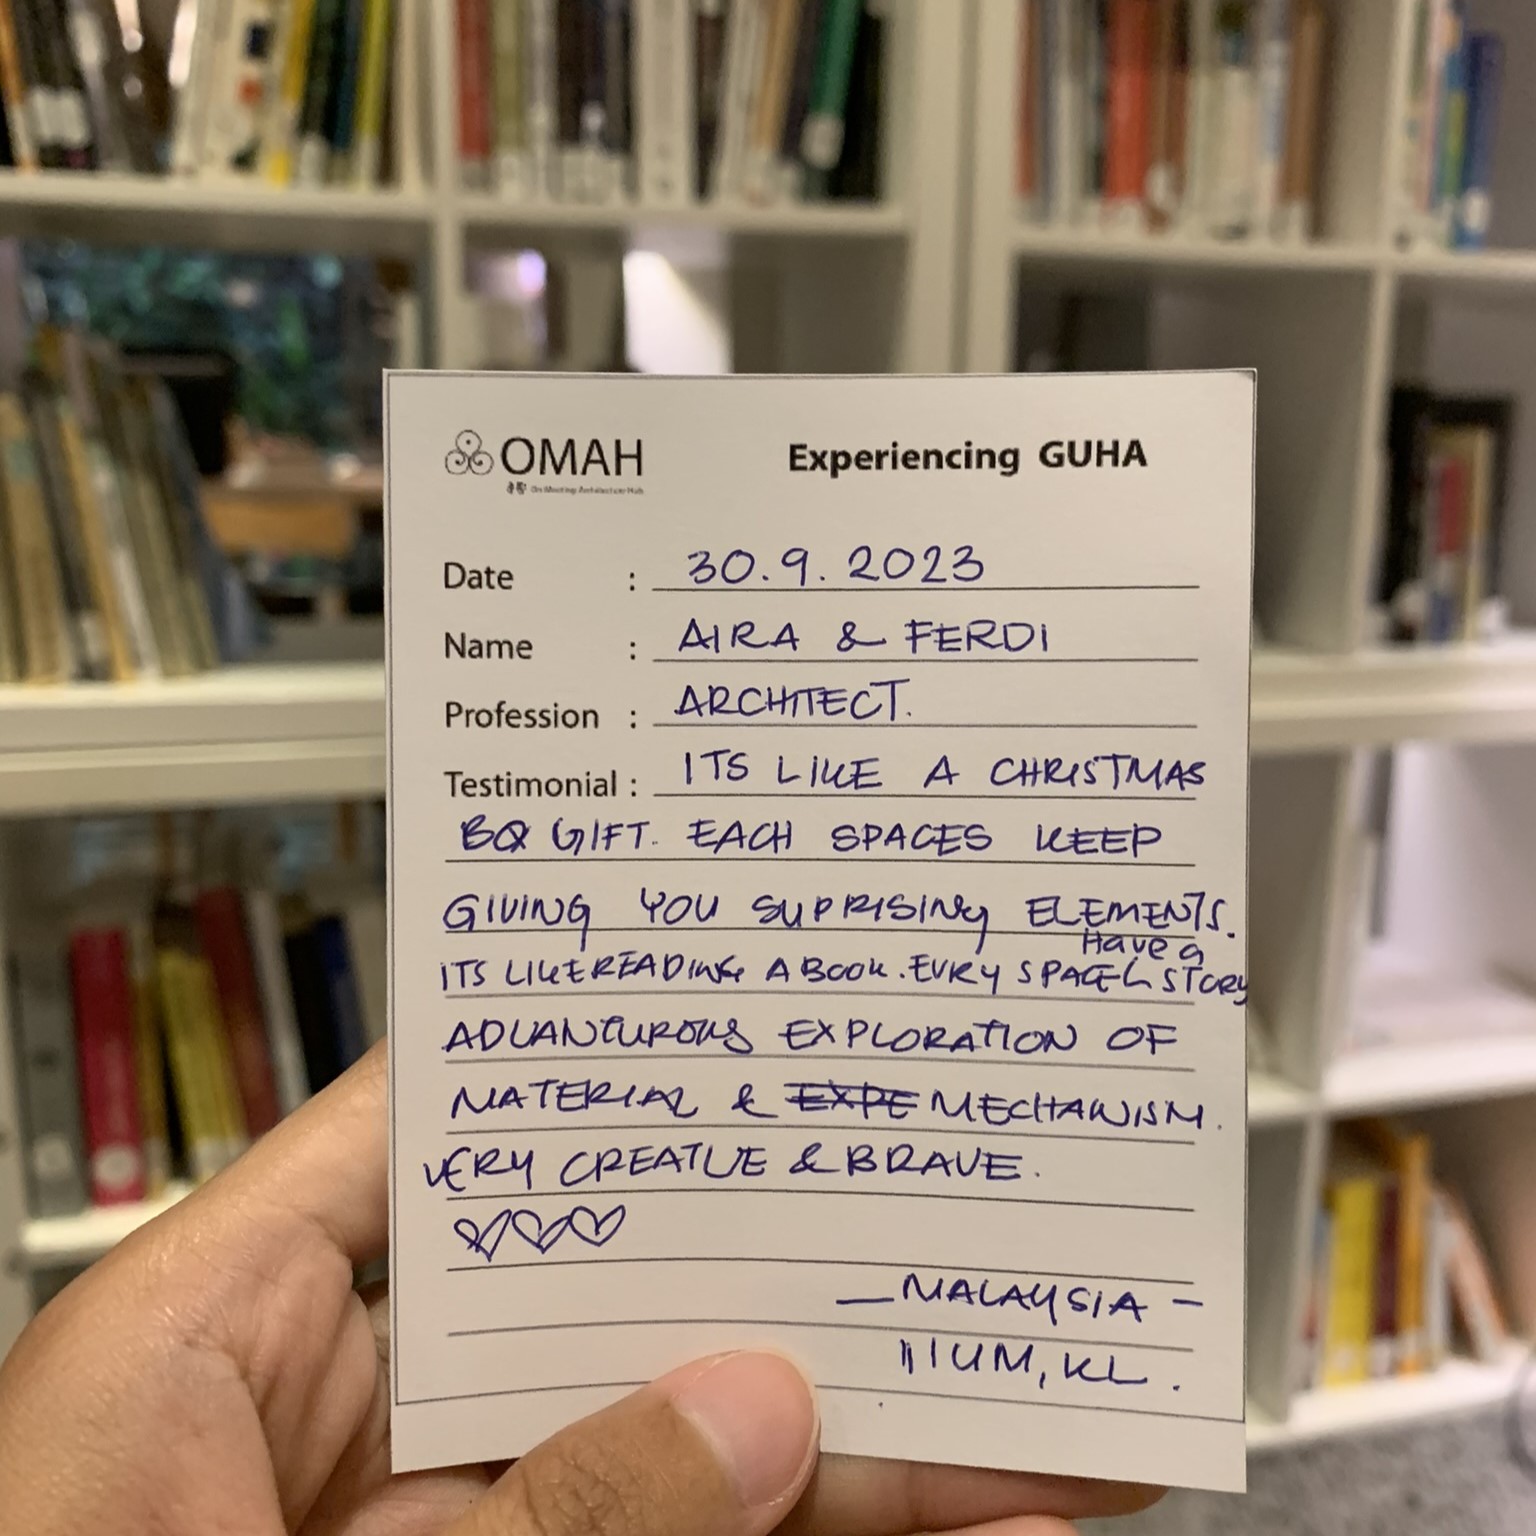 OMAH
Experiencing GUHA
Date : 30.9.2023
Name : AIRA & FERDI
Profession : ARCHITECT.
Testimonial : ITS LIKE A CHRISTMAS
BOX GIFT. EACH SPACES KEEP
GIVING YOU SUPRISING ELEMENTS.
Have a
ITS LIKE READING A BOOK. EVRY SPACE STORY
ADVANTUROUS EXPLORATION OF
MATERIAL & EXPE MECHANISM.
VERY CREATIVE & BRAVE.
— MALAYSIA —
IIUM, KL.